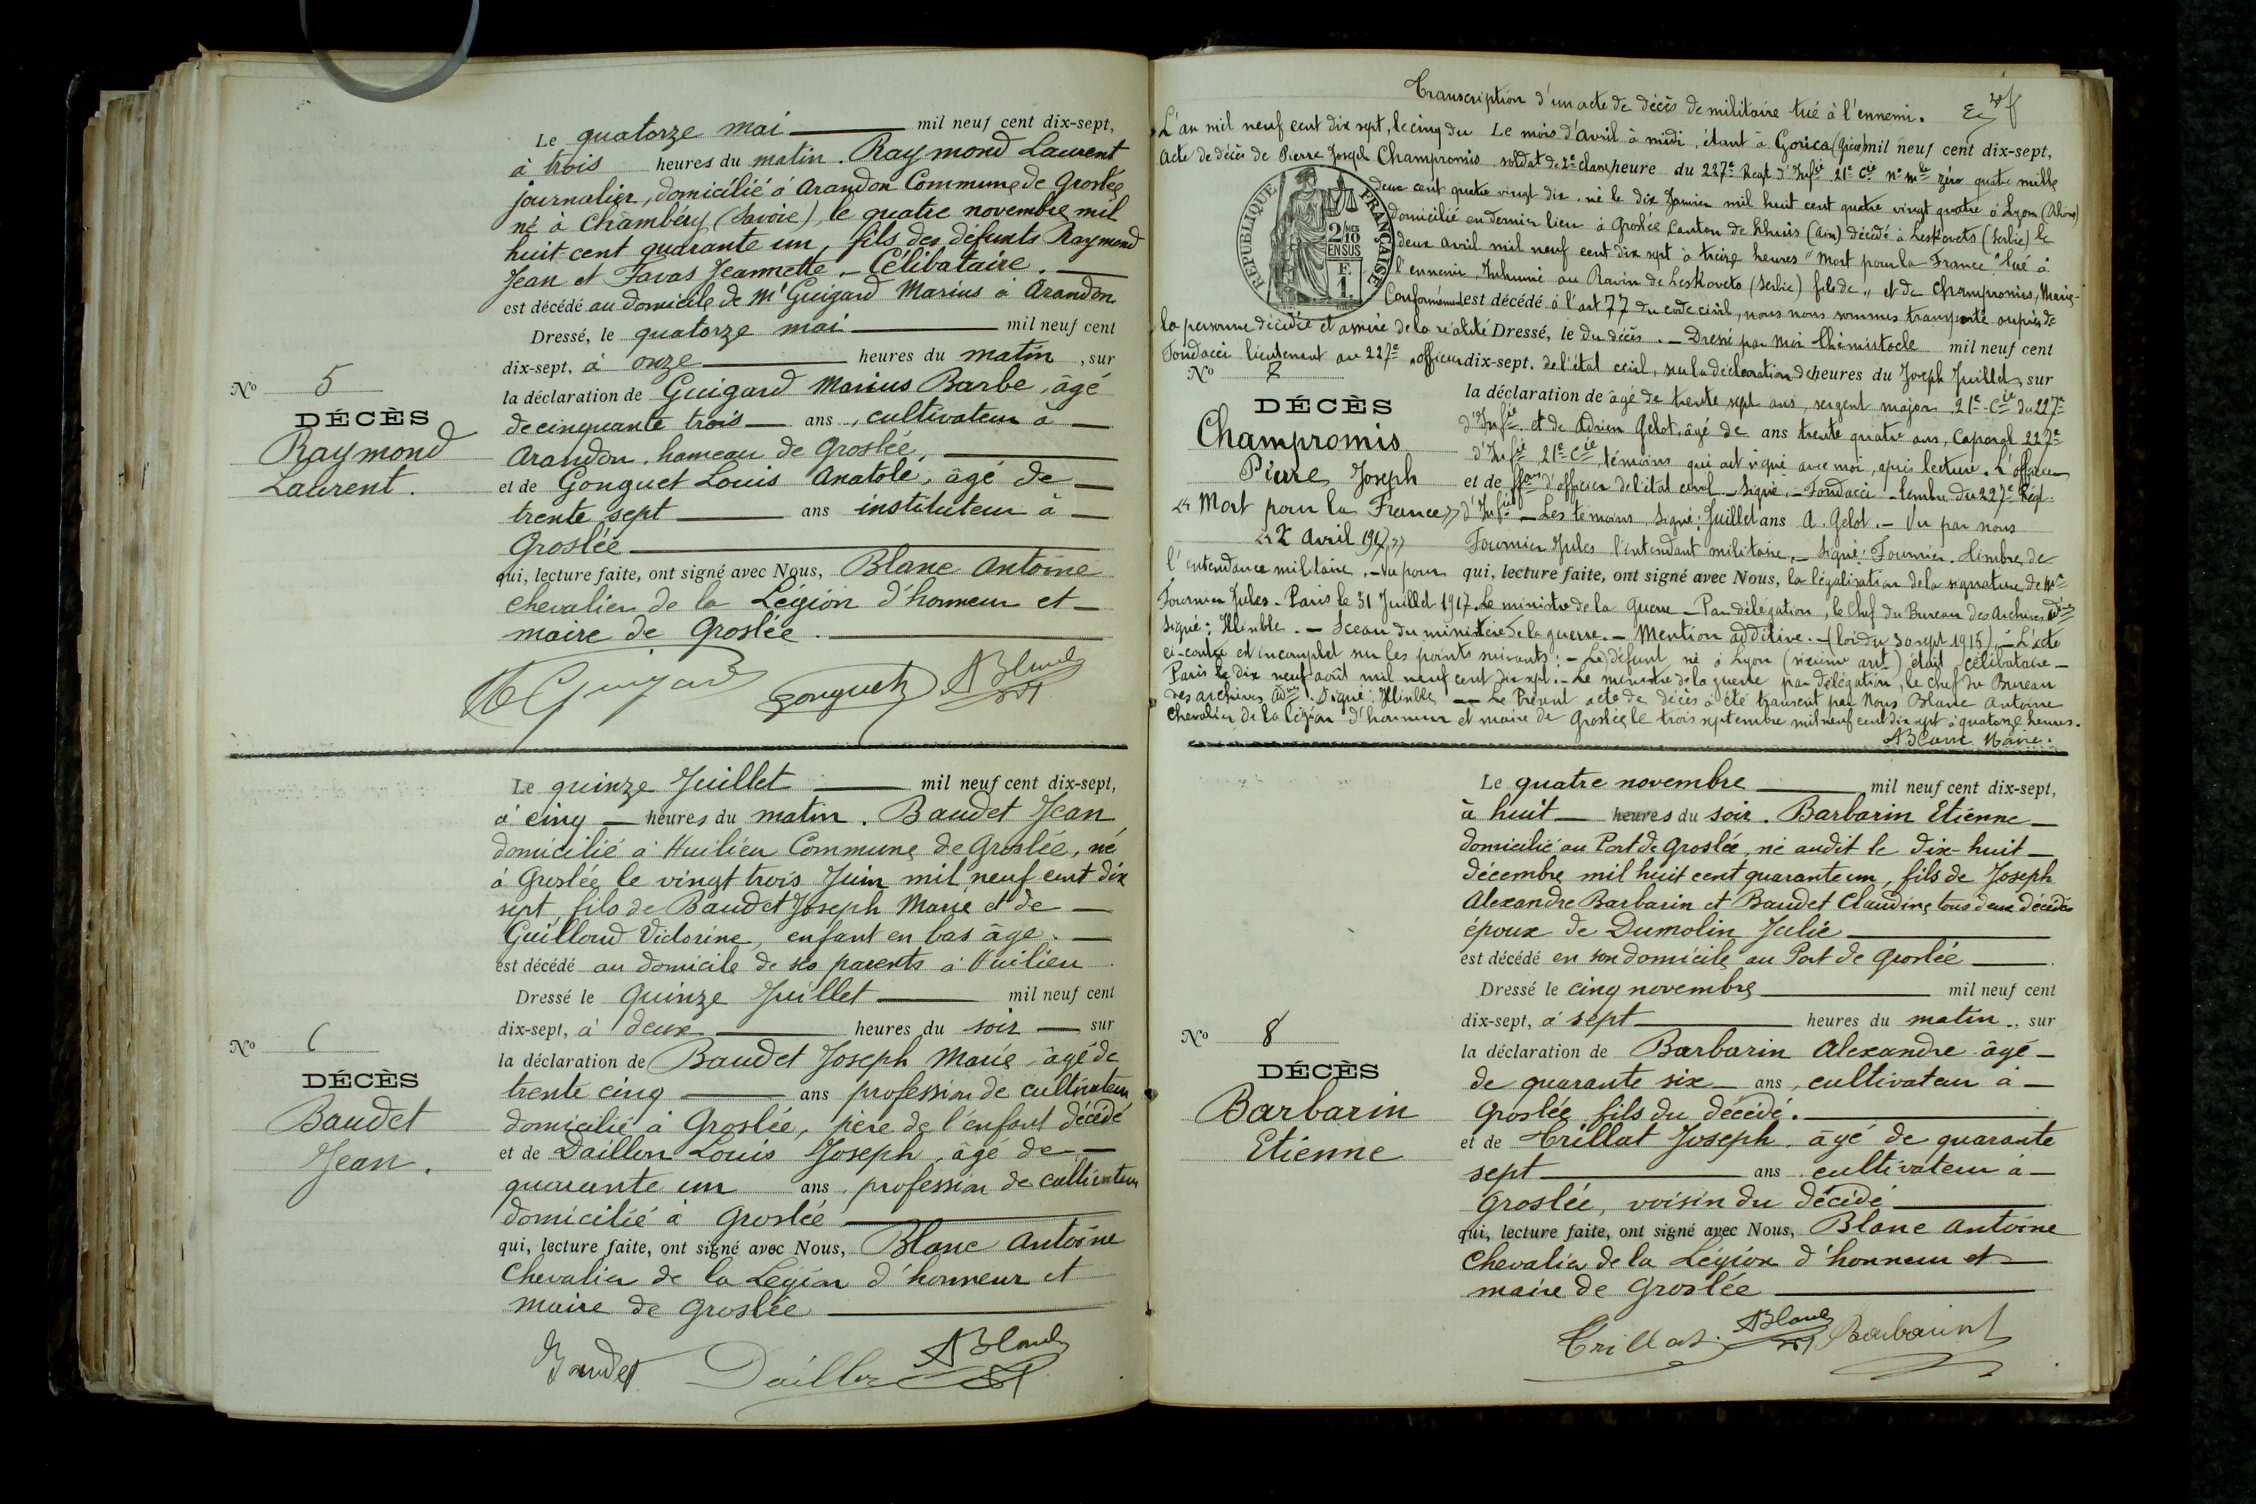 Le quatorze mai mil neuf cent dix-sept,
à trois heures du matin. Raymond Laurent
journalier, domicilié à Arandon Commune de Groslée
né à Chambéry (Savoie), le quatre novembre mil
huit-cent quarante un, fils des défunts Raymond
Jean et Favas Jeannette. - Célibataire.
est décédé au domicile de Mr Guigard Marius à Arandon
Dressé, le quatorze mai mil neuf cent
dix-sept, à onze heures du matin, sur
No 5
la déclaration de Guigard Marius Barbe, âgé
DÉCÈS
de cinquante trois ans, cultivateur à
Raymond
Arandon, hameau de Groslée,
Laurent.
et de Gonguet Louis Anatole, âgé de
trente sept ans instituteur à
Groslée
qui, lecture faite, ont signé avec Nous, Blanc Antoine
chevalier de la Légion d'honneur et
maire de Groslée.
Guigard Gonguet ABlanc
Le quinze Juillet mil neuf cent dix-sept,
à cinq heures du matin. Baudet Jean,
domicilié à Huilieu Commune de Groslée, né
à Groslée le vingt trois Juin mil neuf cent dix
sept, fils de Baudet Joseph Marie et de
Guilloud Victorine, enfant en bas âge.
est décédé au domicile de ses parents à Huilieu
Dressé le Quinze Juillet mil neuf cent
dix-sept, à deux heures du soir sur
No 6
la déclaration de Baudet Joseph Marie, âgé de
DÉCÈS
trente cinq ans profession de cultivateur
Baudet
domicilié à Groslée, père de l'enfant décédé
Jean.
et de Daillon Louis Joseph, âgé de
quarante un ans, profession de cultivateur
domicilié à Groslée
qui, lecture faite, ont signé avec Nous, Blanc Antoine
Chevalier de la Légion d'honneur et
maire de Groslée
Baudet Daillon ABlanc
Transcription d'un acte de décès de militaire tué à l'ennemi.
L'an mil neuf cent dix sept, le cinq du Le mois d'avril à midi, étant à Gorica (Grèce) mil neuf cent dix-sept,
Acte de décès de Pierre Joseph Champromis soldat de 2e classe heure du 227e Regt d'Infie 21e Cie no mle zéro quatre mille
deux cent quatre vingt dix, né le dix Janvier mil huit cent quatre vingt quatre à Lyon (Rhône)
domicilié en dernier lieu à Groslée Canton de Lhuis (Ain) décédé à Leskovets (Serbie) le
deux avril mil neuf cent dix sept à treize heures "Mort pour la France" tué à
l'ennemi, Inhumé au Ravin de Leskovets (Serbie) fils de ,, et de Champromis, Marie-
Conformément est décédé à l'art 77 du code civil, nous nous sommes transporté auprès de
la personne décédée et assuré de la réalité Dressé, le du décès. - Dressé par moi Thémistocle mil neuf cent
Fondacci lieutenant au 227e, officier dix-sept, de l'état civil, sur la déclaration de heures du Joseph Juillet, sur
No 7
la déclaration de âgé de trente sept ans, sergent major 21e Cie du 227e
DÉCÈS
d'Infie et de Adrien Gelot, âgé de ans trente quatre ans, Caporal 227e
Champromis
d'Infie 21e Cie, témoins qui ont signé avec moi, après lecture. L'officier
Pierre Joseph
et de ffons d'officier de l'état civil - Signé. - Fondacci - timbre du 227e Régt
"Mort pour la France"
d'Infie - Les témoins, signé: Juillet ans A. Gelot. - Vu par nous
"2 Avril 1917"
Fournier Jules l'intendant militaire. - Signé: Fournier. timbre de
l'intendance militaire. - Vu pour qui, lecture faite, ont signé avec Nous, la légalisation de la signature de Mr
Fournier Jules. Paris le 31 Juillet 1917. Le ministre de la Guerre - Par délégation, le Chef du Bureau des Archives adves
Signé: - Sceau du ministère de la guerre. - Mention additive. - (loi du 30 sept 1915) - L'acte
ci-contre est incomplet sur les points suivants: - Le défunt né à Lyon (sixième art) était célibataire -
Paris le dix neuf août mil neuf cent dix sept. - Le ministre de la guerre par délégation, le chef du Bureau
des archives adves. Signé: - Le Présent acte de décès a été transcrit par Nous Blanc Antoine
Chevalier de la légion d'honneur et maire de Groslée le trois septembre mil neuf cent dix sept à quatorze heures.
ABlanc Maire.
RÉPUBLIQUE FRANÇAISE
2/10 EN SUS
F. 1.
Le quatre novembre mil neuf cent dix-sept,
à huit heures du soir. Barbarin Etienne
domicilié au Port de Groslée, né audit le dix-huit
décembre mil huit cent quarante un, fils de Joseph
Alexandre Barbarin et Baudet Claudine tous deux décédés
époux de Dumolin Julie
est décédé en son domicile au Port de Groslée
Dressé le cinq novembre mil neuf cent
dix-sept, à sept heures du matin, sur
No 8
la déclaration de Barbarin Alexandre âgé
DÉCÈS
de quarante six ans, cultivateur à
Barbarin
Groslée fils du décédé.
Etienne
et de Trillat Joseph, âgé de quarante
sept ans cultivateur à
Groslée, voisin du décédé
qui, lecture faite, ont signé avec Nous, Blanc Antoine
Chevalier de la Légion d'honneur et
maire de Groslée
Trillat ABlanc Barbarin